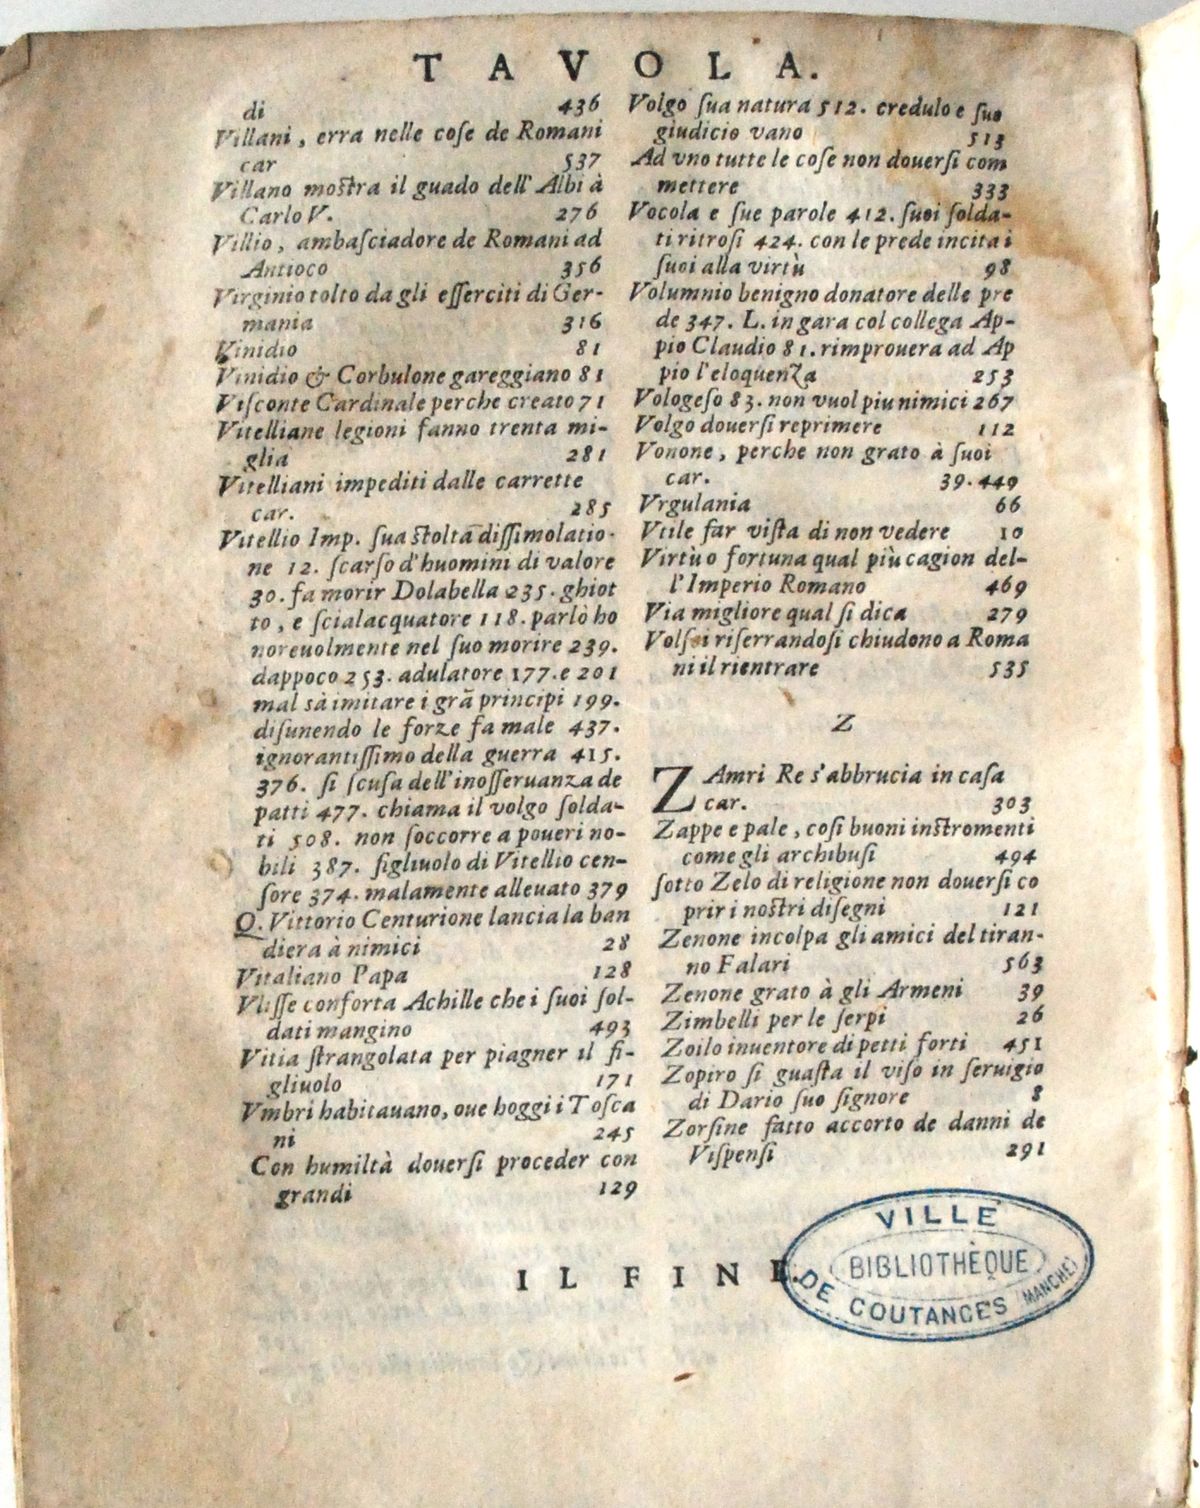 TAVOLA.
di 436
Villani, erra nelle coſe de Romani
car 537
Villano moſtra il guado dell'Albi à
Carlo V. 276
Villio, ambaſciadore de Romani ad
Antioco 356
Virginio tolto da gli eſſerciti di Ger-
mania 316
Vinidio 81
Vinidio & Corbulone gareggiano 81
Viſconte Cardinale perche creato 71
Vitelliane legioni fanno trenta mi-
glia 281
Vitelliani impediti dalle carrette
car. 285
Vitellio Imp. ſua ſtolta diſſimolatio-
ne 12. ſcarſo d'huomini di valore
30. fa morir Dolabella 235. ghiot
to, e ſcialacquatore 118. parlò ho
noreuolmente nel ſuo morire 239.
dappoco 253. adulatore 177. e 201
mal sà imitare i grã principi 199.
diſunendo le forze fa male 437.
ignorantiſſimo della guerra 415.
376. ſi ſcuſa dell'inoſſeruanza de
patti 477. chiama il volgo ſolda-
ti 508. non ſoccorre a poueri no-
bili 387. figliuolo di Vitellio cen-
ſore 374. malamente alleuato 379
Q. Vittorio Centurione lancia la ban
diera à nimici 28
Vitaliano Papa 128
Vliſſe conforta Achille che i ſuoi ſol-
dati mangino 493
Vitia ſtrangolata per piagner il fi-
gliuolo 171
Vmbri habitauano, oue hoggi i Toſca
ni 245
Con humiltà douerſi proceder con
grandi 129
Volgo ſua natura 512. credulo e ſuo
giudicio vano 513
Ad vno tutte le coſe non douerſi com
mettere 333
Vocola e ſue parole 412. ſuoi ſolda-
ti ritroſi 424. con le prede incita i
ſuoi alla virtù 98
Volumnio benigno donatore delle pre
de 347. L. in gara col collega Ap-
pio Claudio 81. rimprouera ad Ap
pio l'eloquenza 253
Vologeſo 83. non vuol piu nimici 267
Volgo douerſi reprimere 112
Vonone, perche non grato à ſuoi
car. 39. 449
Vrgulania 66
Vtile far viſta di non vedere 10
Virtù o fortuna qual più cagion del-
l'Imperio Romano 469
Via migliore qual ſi dica 279
Volſci riſerrandoſi chiudono a Roma
ni il rientrare 535
Z
ZAmri Re s'abbrucia in caſa
car. 303
Zappe e pale, coſi buoni inſtromenti
come gli archibuſi 494
ſotto Zelo di religione non douerſi co
prir i noſtri diſegni 121
Zenone incolpa gli amici del tiran-
no Falari 563
Zenone grato à gli Armeni 39
Zimbelli per le ſerpi 26
Zoilo inuentore di petti forti 451
Zopiro ſi guaſta il viſo in ſeruigio
di Dario ſuo ſignore 8
Zorſine fatto accorto de danni de
Viſpenſi 291
IL FINE.
VILLE
BIBLIOTHÈQUE
DE COUTANCES (MANCHE)